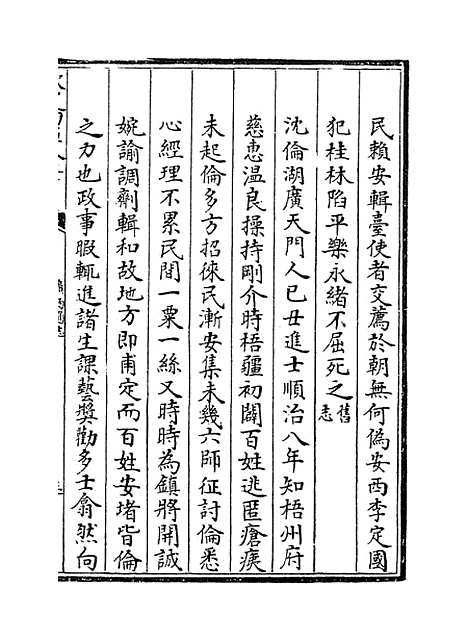 民賴安輯臺使者交薦於朝無何偽安西李定國
犯桂林陷平樂永緒不屈死之舊志
沈倫湖廣天門人已丑進士順治八年知梧州府
慈惠温良操持剛介時梧疆初闢百姓逃匿瘡痍
未起倫多方招徠民漸安集未幾六師征討倫悉
心經理不累民間一粟一絲又時時為鎮將開誠
婉諭調劑輯和故地方即甫定而百姓安堵皆倫
之力也政事暇輒進諸生課藝奨勸多士翕然向